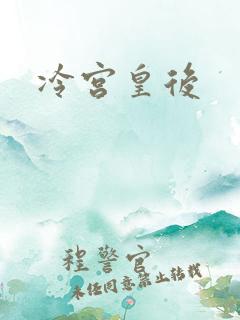 冷宫皇後
程警官
未经同意禁止转载